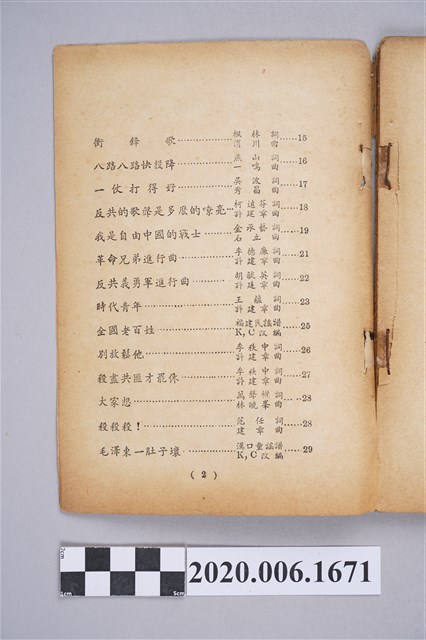 衝鋒歌 楓林詞 川曲 15
八路八路快投降 燕山詞 一鳴曲 16
一仗打得好 吳波詞 秀昌曲 17
反共的歌聲是多麼的嘹亮 柯遠芬詞 許建章曲 18
我是自由中國的戰士 金承藝詞 石立曲 19
革命兄弟進行曲 李德廉詞 許建章曲 21
反共義勇軍進行曲 胡毓英詞 許建章曲 22
時代青年 王蘊詞 許建章曲 23
全國老百姓 福建民謠譜 K,C改編 25
別放鬆他 李 中詞 許建章曲 26
殺盡共匪才罷休 李 中詞 許建章曲 27
大家想 萬 詞 林曉峯曲 28
殺殺殺! 范任詞 建章曲 28
毛澤東一肚子壞 漢口童謠譜 K,C改編 29
(2)
7cm
1cm
5cm
2020.006.1671